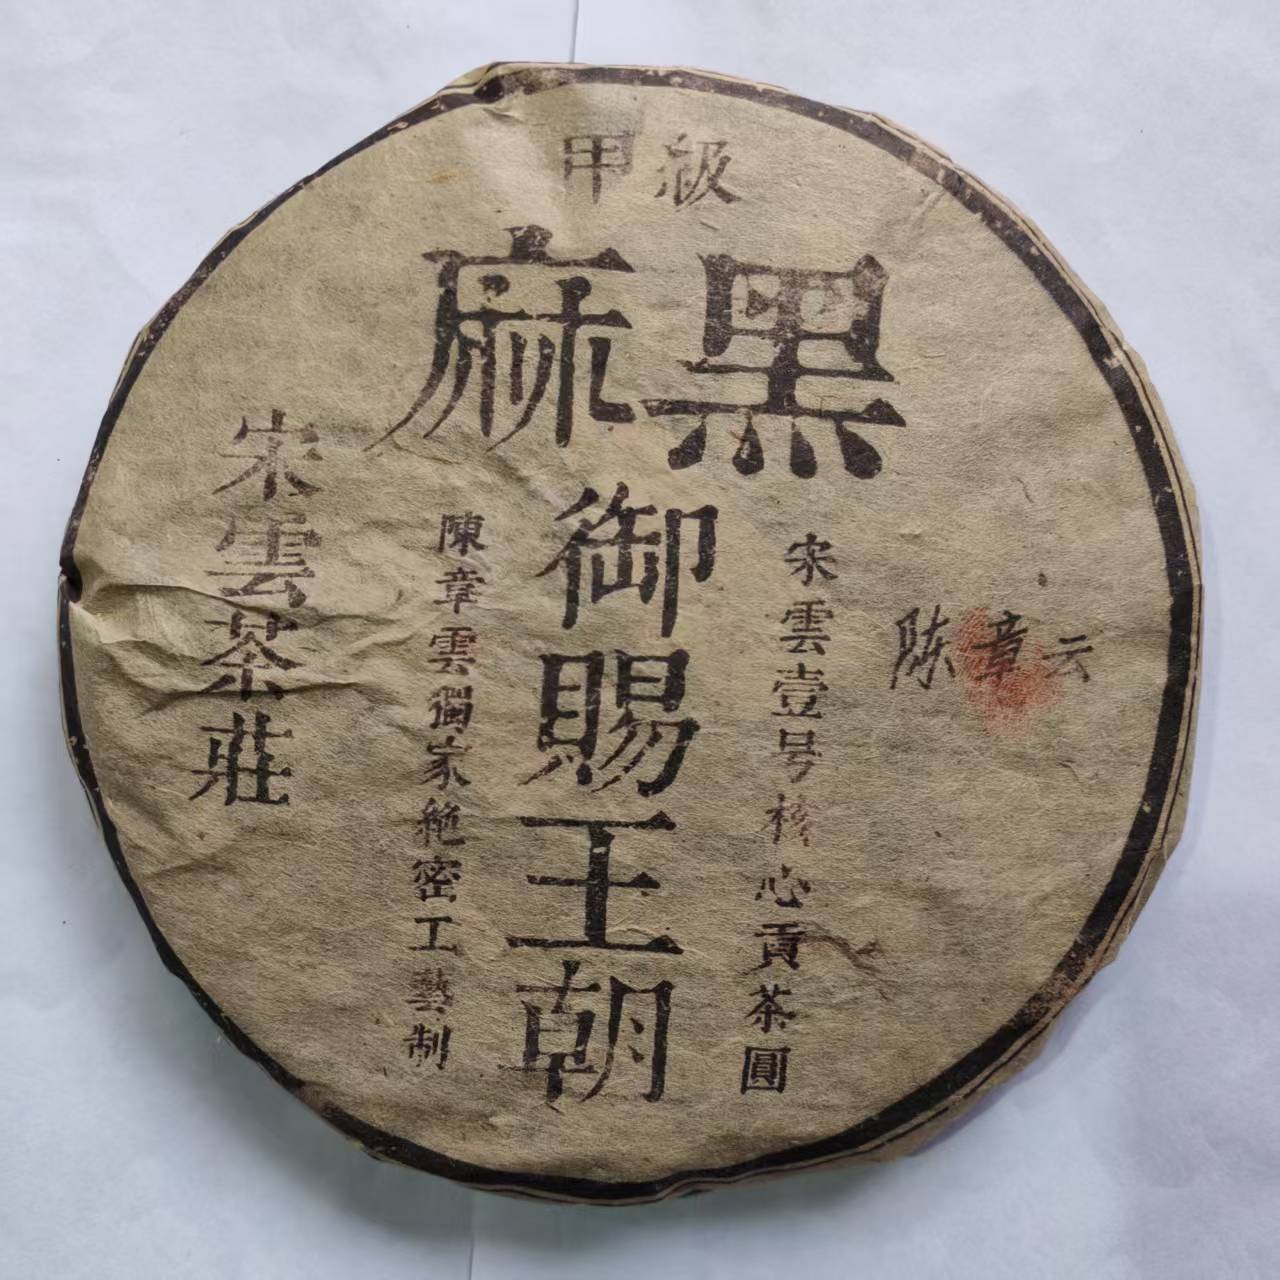 甲級
麻黑
陈章云
宋雲壹号核心貢茶圓
御賜王朝
陳章雲獨家絶密工藝制
宋雲茶莊